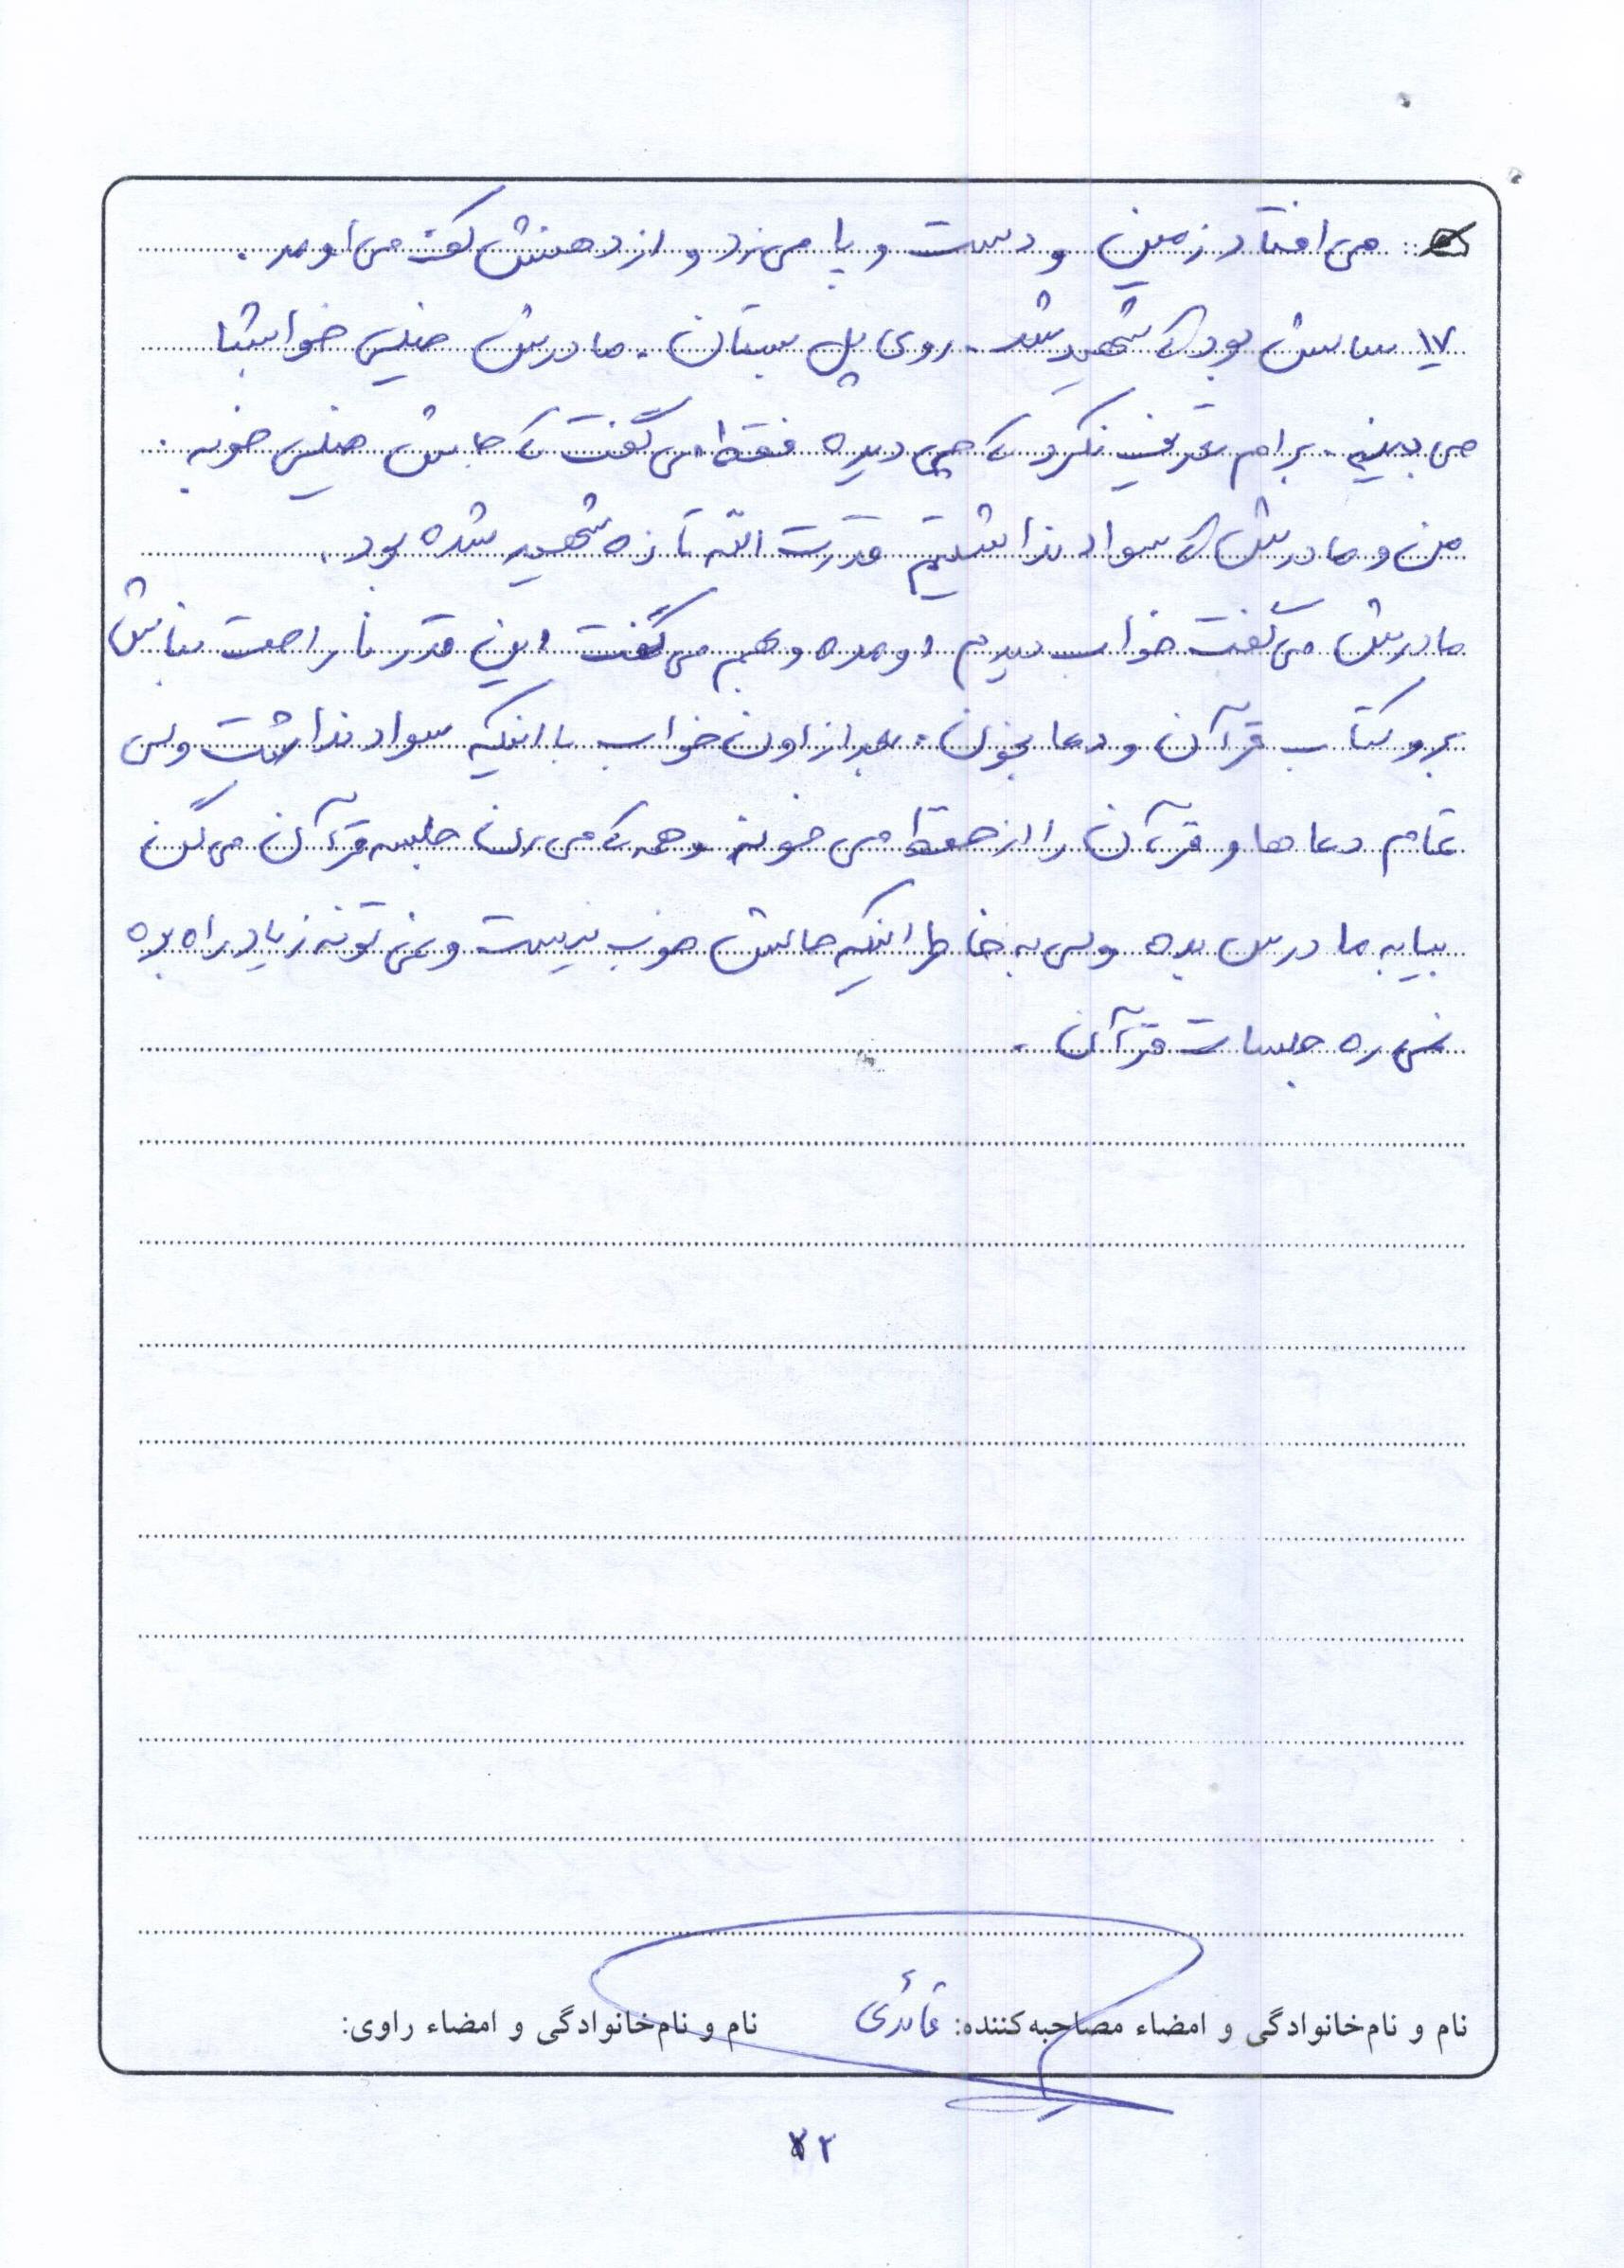 می افتاد زمین و دست و پا می زد و از دهنش کف می اومد.
۱۷ سالش بود که شهید شد. روی پل بستان. مادرش خیلی خوابشا
می بینه. برام تعریف نکرد که چی دیده فقط می گفت که جاش خیلی خوبه.
من و مادرش که سواد نداشتیم قدرت الله تازه شهید شده بود.
مادرش می گفت خواب دیدم اومده و بهم می گفت این قدر ناراحت نباش
برو کتاب قرآن و دعا بخون. بعد از اون خواب با اینکه سواد نداشت ولی
تمام دعاها و قرآن را از حفظ می خونه و همه که می رن جلسه قرآن می گن
بیا به ما درس بده ولی به خاطر اینکه حالش خوب نیست و نمی تونه زیاد راه بره
نمی ره جلسات قرآن.
نام و نام‌خانوادگی و امضاء مصاحبه‌کننده: قائدی نام و نام‌خانوادگی و امضاء راوی: